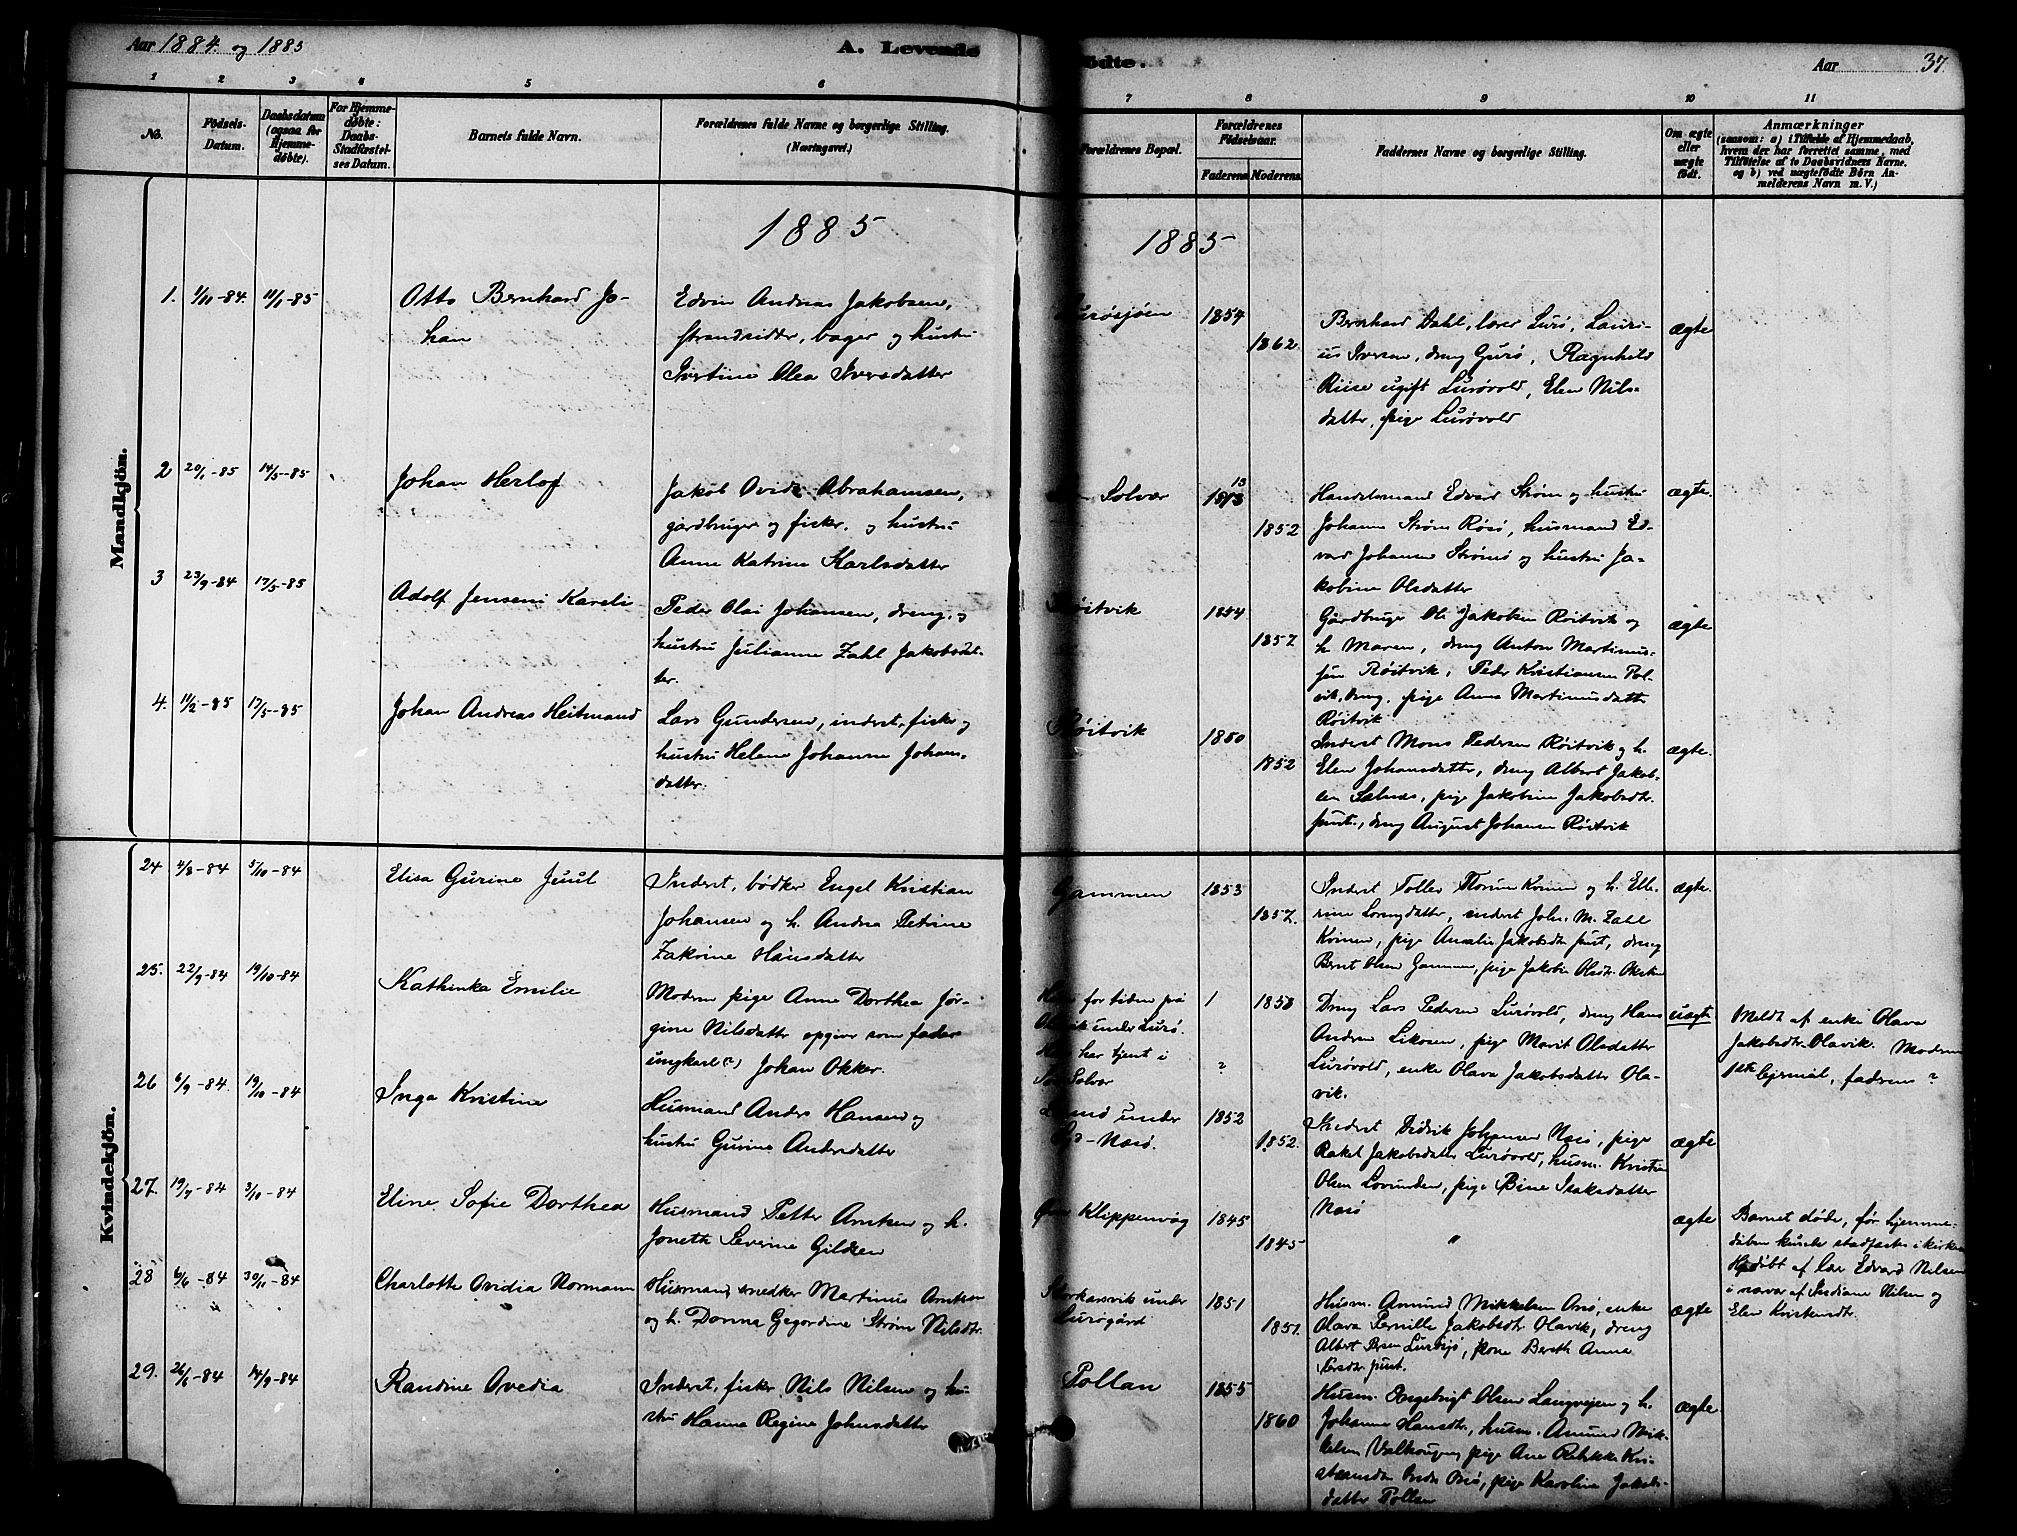 Aar 1884 og 1885
A. Levende
ødte.
Aar 37
1 2 3 4 5 6 7 8 9 10 11
No.
Fødsels-
Datum.
Daabsdatum
(ogsaa for
Hjemme-
døbte).
For Hjemme-
døbte:
Daabs-
Stadfæstel-
ses Datum.
Barnets fulde Navn.
Forældrenes fulde Navne og borgerlige Stilling.
(Næringsvei.)
Forældrenes Bopæl.
Forældrenes
Fødselsaar.
Faderens. Moderens.
Faddernes Navne og borgerlige Stilling.
Om ægte
eller
uægte
født.
Anmærkninger
(saasom: a) i Tilfælde af Hjemmedaab,
hvem der har forrettet samme, med
Tilføielse af to Daabsvidners Navne.
og b) ved uægtefødte Børn An-
melderens Navn m. V.)
Mandkjøn.
1885
1885
1. 1/10-84. 11/1-85
Otto Bernhard Jo-
han
Edvin Andreas Jakobsen,
strandsidder, bager og hustru
Ivertine Olea Iversdatter
Lurøsjøen 1854
1862
Bernhard Dahl, lærer Lurø, Lauri-
us Iversen, dreng Gurø, Ragnhild
Riise ugift Lurøvold, Elen Nils-
datter, pige Lurøvold
ægte
2 20/1-85 14/5-85
Johan Herlof
Jakob Ovidi Abrahamsen,
gårdbruger og fisker, og hustru
Anne Katrine Karlsdatter
Solvær
1852
Handelsmand Edvard Strøm og hustru
Johanna Strøm Røsø, husmand Ed-
vard Johansen Strømø og hustru Ja-
kobine Olsdatter
ægte.
3 23/9-84 17/5-85
Adolf Jenseni Kareli
Peder Olai Johansen, dreng, og
hustru Julianne Zahl Jakobsdat-
ter.
Røitvik 1854
1857
Gårdbruger Ole Jakobsen Røitvik og
h. Maren, dreng Anton Martinus-
sen Røitvik, Peder Kristiansen Sol-
vik, dreng, pige Anna Martinusdatter
Røitvik
ægte
4. 11/2-85 17/5-85
Johan Andreas Heitmand
Lars Gundersen, inderst, fisker og
hustru Helene Johanna Johans-
datter.
Røitvik 1850
1852
Inderst Mons Pedersen Røitvik og h.
Elen Johansdatter, dreng Albert Jakob-
sen Selnæs, pige Jakobine Jakobsdtr.
sust., dreng August Johansen Røitvik
ægte.
Kvindekjøn.
24 4/8-84 5/10-84
Elisa Gurine Juul
Inderst, bødker Engel Kristian
Johansen og h. Andrea Petrine
Zakrine Hansdatter
Gammen 1853
1857.
Inderst Toller Thorsen Kvinen og h. Elle-
rine Lorngdatter, inderst Joh. M. Zahl
Kvinen, pige Amalie Jakobsdtr sust, dreng
Bernt Olsen Gammen, pige Jakobine Olsdtr.
ægte.
25. 22/9-84 19/10-84
Kathinka Emilie
Moderen pige Anne Dorthea Jør-
gine Nilsdatter opgiver som fader
ungkarl (?) Johan Okker.
for tiden på
Olavik under Lurø.
Hun har tjent i
Solvær
1853
?
Dreng Lars Pedersen Lurøvold, dreng Hans
Andreas Likosen, pige Marit Olsdatter
Lurøvold, enke Olava Jakobsdatter Ola-
vik.
uægte
Meldt af enke Olava
Jakobsdtr. Olavik. Moderens
1ste lejermål, fadrens ?
26 6/9-84. 19/10-84
Inga Kristine
Husmand Anders Hansen og
hustru Gurine Andersdatter
under
Syd-Næsø.
1852
1852.
Inderst Didrik Johansen Næsø, pige
Rakel Jakobsdatter Lurøvold, husm. Kristen
Olsen Lovunden, pige Bine Isaksdatter
Næsø
ægte
27. 19/7-84 3/10-84
Eline Sofie Dorthea
Husmand Petter Arntsen og h.
Joneth Severine Gildsen
Klippenvåg 1845
1845
"
ægte
Barnet døde, før hjemme-
dåben kunde stadfæstes i kirken
Hjdøbt af lær Edvard Nilsen
i nærvær af Indiane Nilsen og
Elen Kristensdtr.
28 6/6-84 30/11-84
Charlotte Ovidia Normann
Husmand, snedker Martinus Arntsen
og h. Dorina Gegordine Strøm Nilsdtr.
Storkarsvik under
Lurøgård
1851
1851.
Husm. Amund Mikkelsen Onø, enke
Olava Pernille Jakobsdtr Olavik, dreng
Albert Persen Lurøsjø, kone Bereth Anna
Persdtr sust.
ægte
29. 26/6-84 14/9-84
Randine Ovedia
Inderst, fisker Nils Nilsen og hu-
stru Hanna Regine Johnsdatter
Pollan 1855
1860
Husm. Engebrigt Olsen Langvejen og h.
Johanna Hansdtr., husm. Amund Mik-
kelsen Valhaugen, pige Ane Rebekka Kri-
stensdtr Indr Onø, pige Karolina Jakobs-
datter Pollen
ægte.